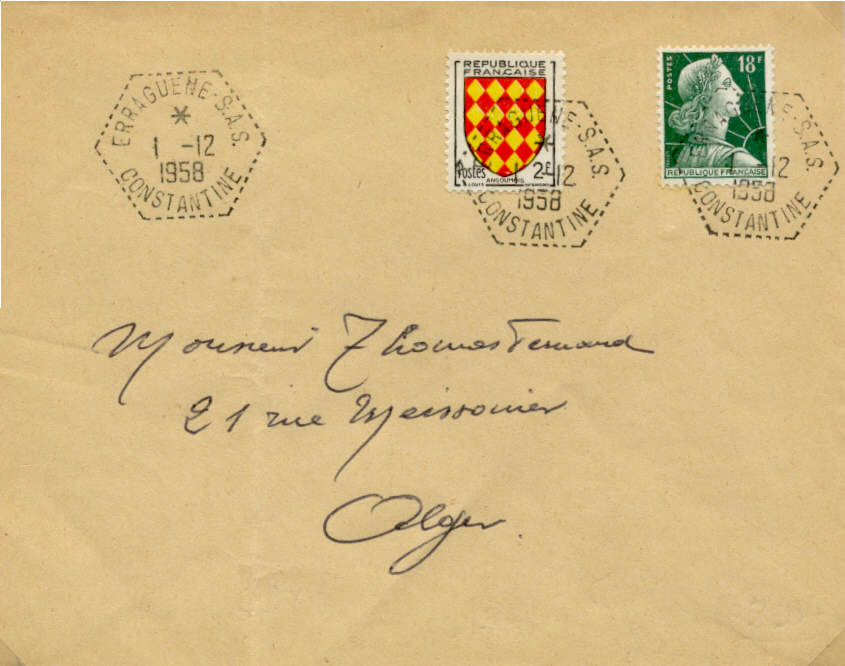 ERRAGUENE-S.A.S.
1 -12
1958
CONSTANTINE
REPUBLIQUE
FRANÇAISE
Postes 2F
ANGOUMOIS
LOUIS
ERRAGUENE-S.A.S.
1 -12
1958
CONSTANTINE
POSTES 18F
REPUBLIQUE FRANÇAISE
ERRAGUENE-S.A.S.
12
1958
CONSTANTINE
Monsieur Thomas Fernand
21 rue Meissonier
Alger